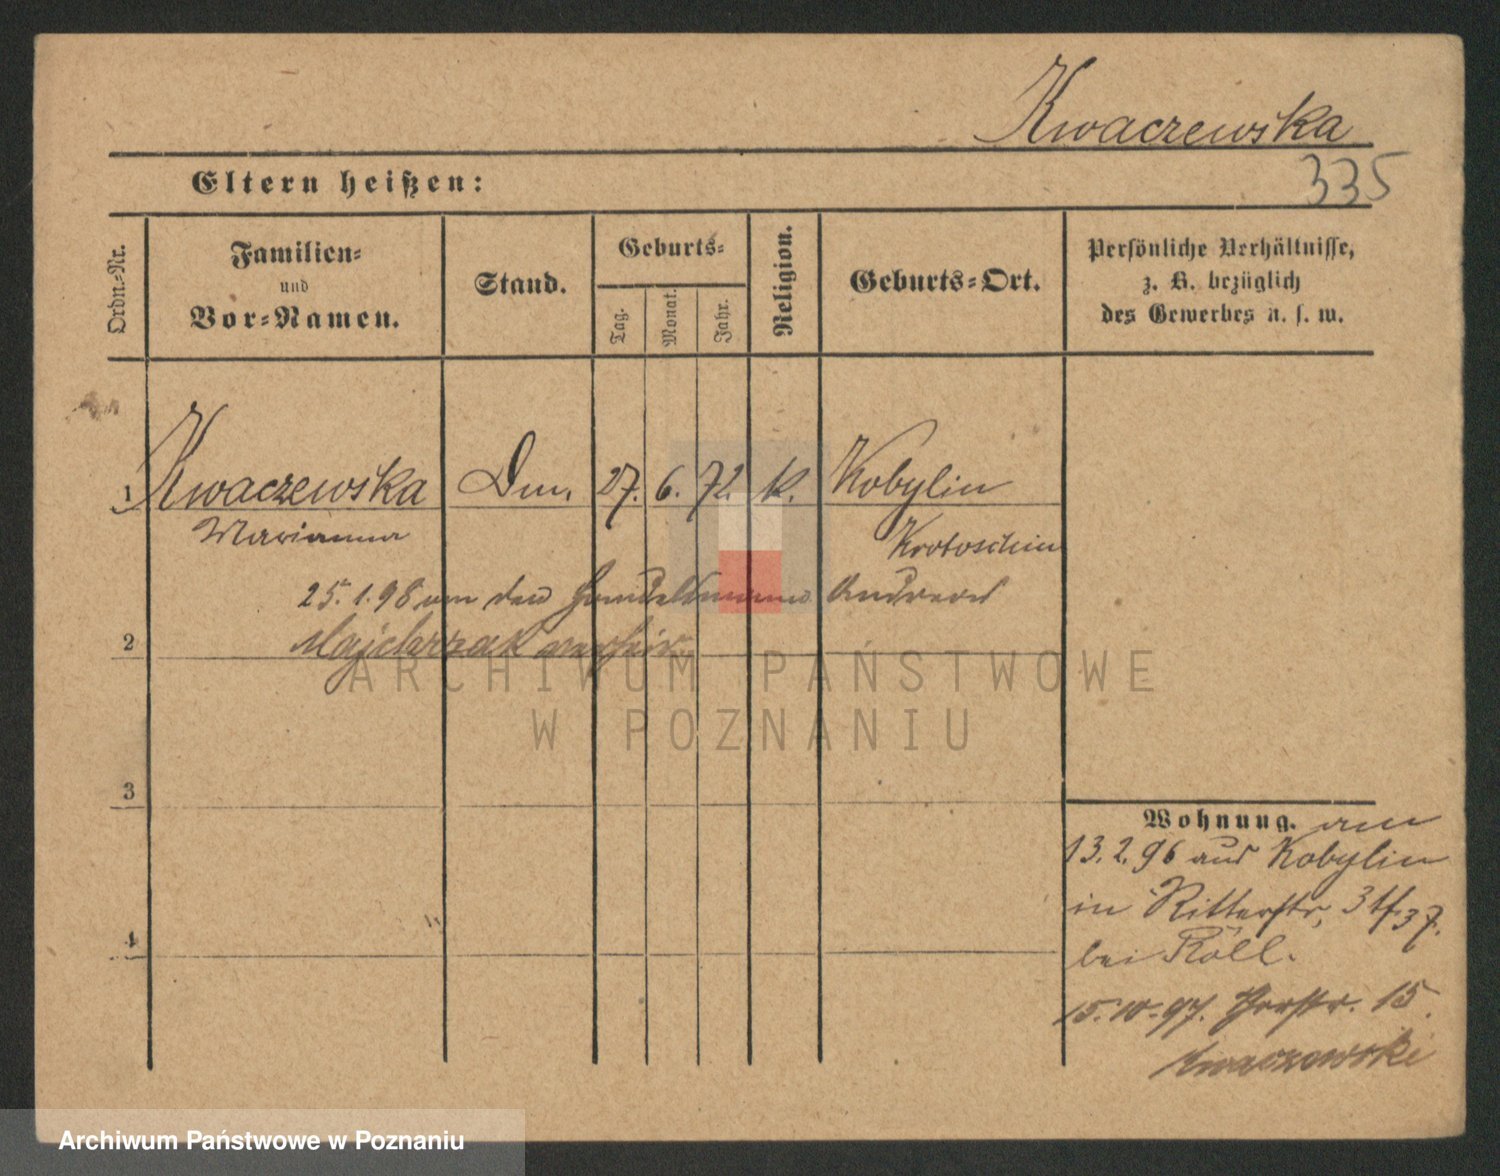 Kwaczewska
Eltern heißen:
335
Ordn.-Nr.
Familien-
und
Vor-Namen.
Stand.
Geburts-
Tag.
Monat.
Jahr.
Religion.
Geburts-Ort.
Persönliche Verhältnisse,
z. B. bezüglich
des Gewerbes u. s. w.
1 Kwaczewska Dm. 27. 6. 72. k. Kobylin
Marianna Krotoschin
25.1.98 an den Handelsmann Andreas
2
Majchrzak verheir.
ARCHIWUM PAŃSTWOWE
W POZNANIU
3
Wohnung. am
13.2.96 aus Kobylin
4
in Ritterstr, 37.
bei Röll.
15.10.97. 15.
Kwaczewski
Archiwum Państwowe w Poznaniu